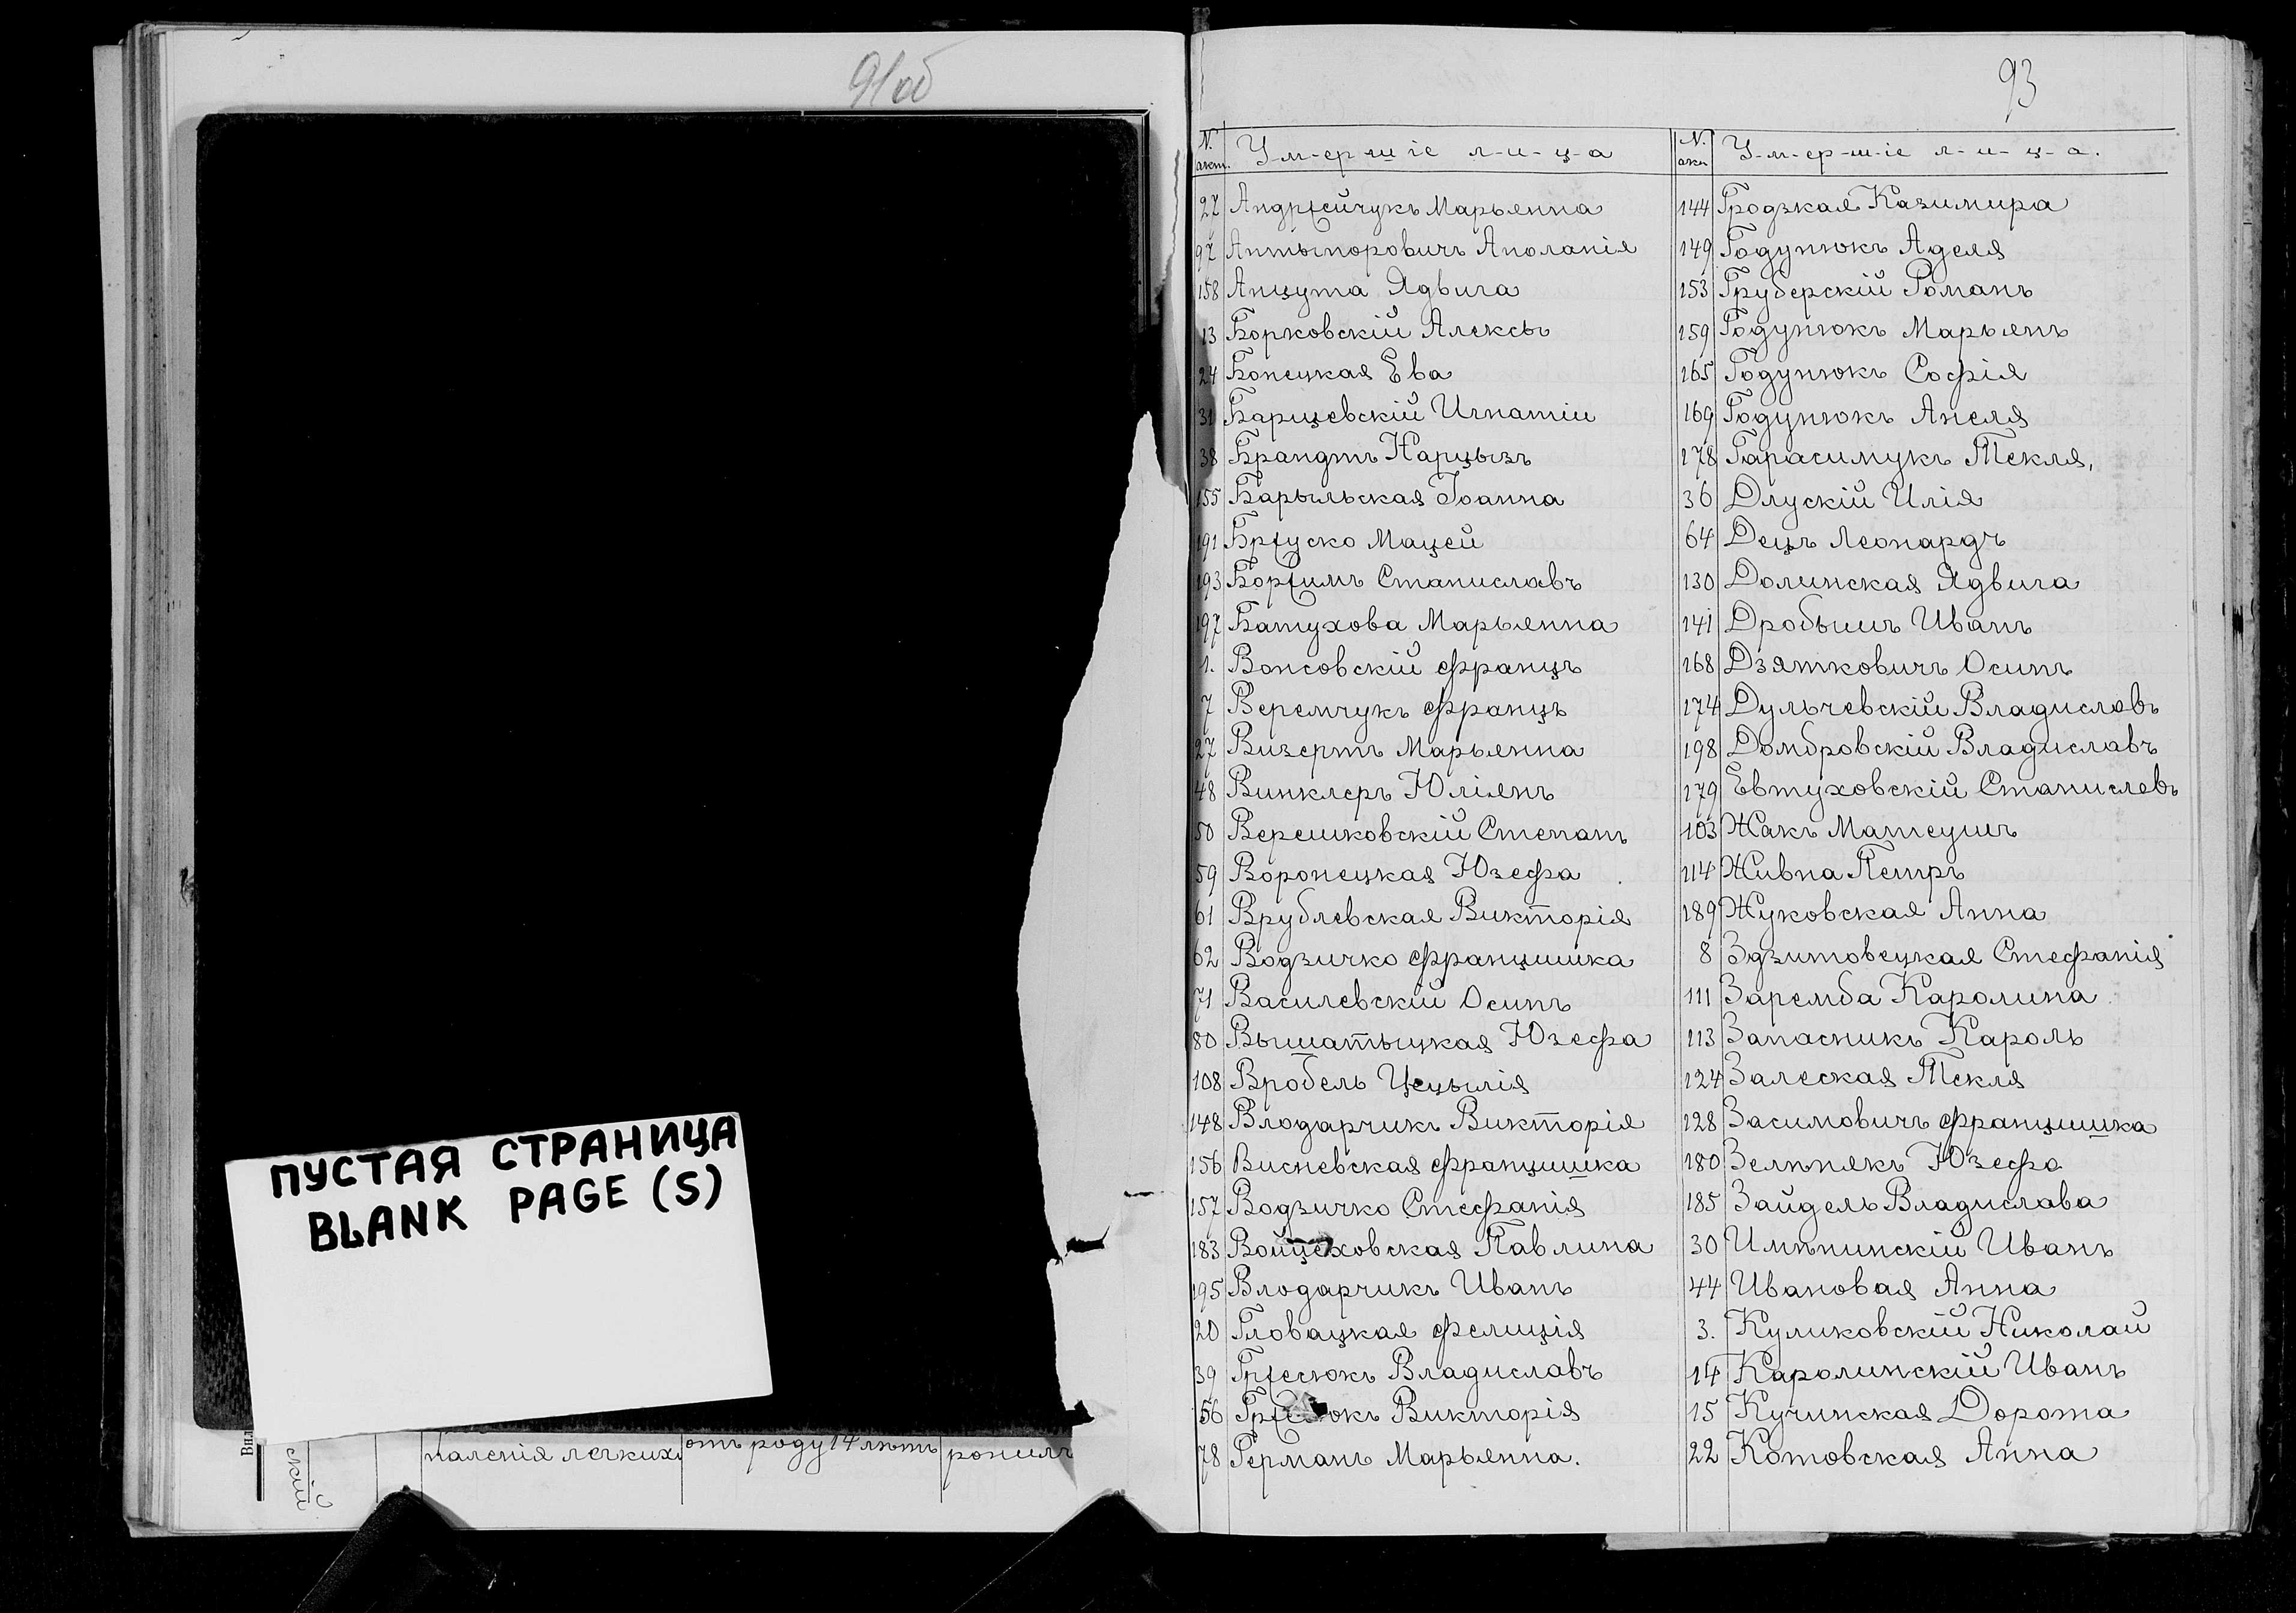 91об
ПУСТАЯ СТРАНИЦА
BLANK PAGE (S)
Вил
скій
паленія легкихъ
отъ роду 14 лѣтъ
93
N. акт. У-м-ер-ш-іе л-и-ц-а
27 Андрѣйчукъ Марьянна
97 Антыпоровичъ Аполанія
158 Анцута Ядвига
13 Борковскій Алексы
24 Бонецкая Ева
31 Барщевскій Игнатіи
38 Брандтъ Нарцызъ
155 Барыльская Іоанна
191 Брѣуско Мацей
193 Борѣимъ Станиславъ
197 Батухова Марьянна
1. Вонсовскій Францъ
7 Веремчукъ Францъ
27 Визертъ Марьянна
48 Винклеръ Юліянъ
50 Верешковскій Степанъ
59 Воронецкая Юзефа
61 Врублевская Викторія
62 Водзичко Францишка
71 Василевскій Осипъ
80 Вышатыцкая Юзефа
108 Вробель Цецылія
148 Влодарчикъ Викторія
156 Висневская Францишка
157 Водзичко Стефанія
183 Войцеховская Павлина
195 Влодарчикъ Иванъ
20 Гловацкая Фелиція
39 Грѣесюкъ Владиславъ
56 Викторія
78 Германъ Марьянна.
N. акт У-м-ер-ш-іе л-и-ц-а.
144 Гродзкая Казимира
149 Годунюкъ Аделя
153 Груберскій Романъ
159 Годунюкъ Марьянъ
165 Годунюкъ Софія
169 Годунюкъ Анеля
178 Гарасимукъ Текля,
36 Длускій Илія
64 Децъ Леонардъ
130 Долинская Ядвига
141 Дробышъ Иванъ
168 Дзятковичъ Осипъ
174 Дульчевскій Владиславъ
198 Домбровскій Владиславъ
179 Евтуховскій Станиславъ
103 Жакъ Матеушъ
114 Живна Петръ
189 Жуковская Анна
8 Здзитовецкая Стефанія
111 Заремба Каролина
113 Запасникъ Кароль
124 Залеская Текля
128 Засимовичъ Францишка
180 Зелѣнякъ Юзефа
185 Зайдель Владислава
30 Имѣнинскій Иванъ
44 Ивановая Анна
3. Куликовскій Николай
14 Каролинскій Иванъ
15 Кучинская Дорота
22 Котовская Анна